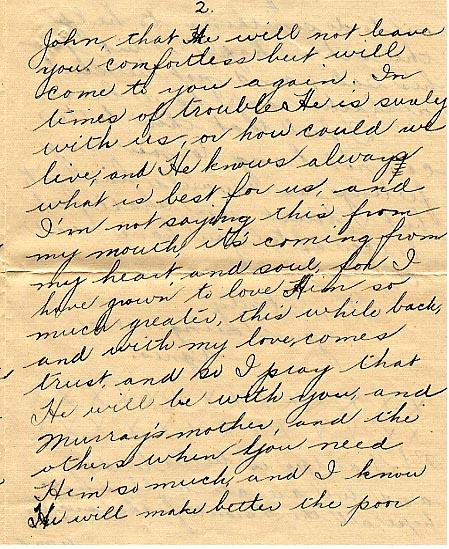 2.
John, that He will not leave
you comfortless but will
come to you again. In
times of trouble He is surely
with us, or how could we
live, and He knows always
what is best for us, and
I'm not saying this from
my mouth, it's coming from
my heart and soul, for I
have grown to love Him so
much greater, this while back,
and with my love, comes
trust, and so I pray that
He will be with you, and
Murray's mother, and the
others when you need
Him so much, and I know
He will make better the poor